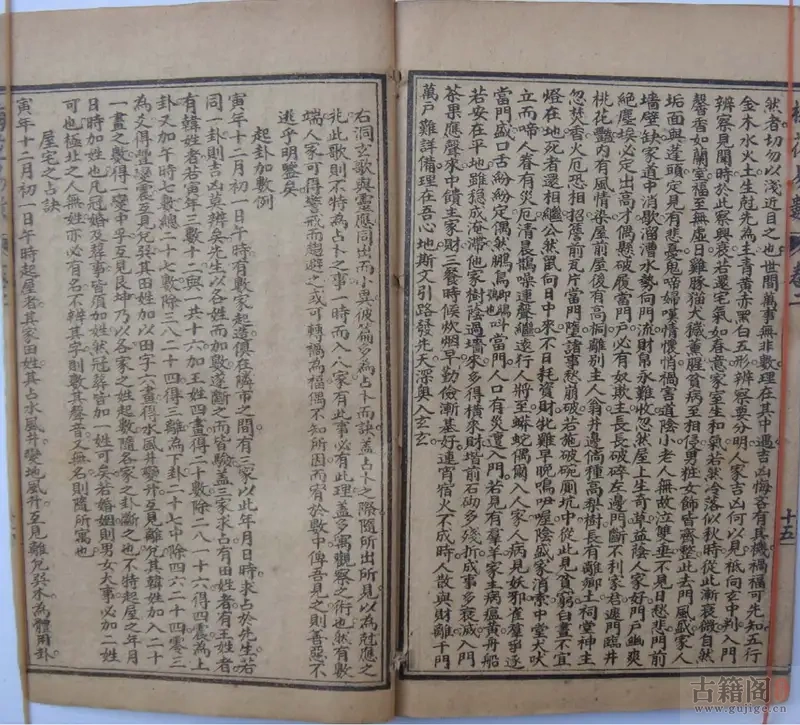 然者切勿以淺近目之也世間萬事無非數理在其中遇吉凶悔吝有其機禍福可先知五行
金木水火土生尅先為主青黃赤黑白五形辨察要分明人家吉凶何以見祗向玄中判入門
辨察見聞時於此察興衰若還宅氣如春意家室生和氣若然冷落似秋時從此漸衰微自然
馨香如蘭室福至無虛日雞豚猫犬穢薰腥貧病至相侵男粧女飾皆齊整此去門風盛家人
垢面與蓬頭定見有悲憂鬼啼婦嘆情懷悄禍害道陰小老人無故泣雙垂不見日愁悲門前
墻壁缺家道中消歇溜漕水勢向門流財帛永難收忽然屋上生奇草益陰人家好門戶幽爽
絕塵埃必定出高才偶懸破履當門戶必有奴欺主長長破碎左邊門斷不利家君遮門臨井
桃花艷內有風情染屋前屋後有高洞離別主人翁井邊倘種高梨樹長有離鄉土祠堂神主
忽焚香火厄恐相招簷前瓦片當門墮諸事愁崩破若施破碗厠坑中從此見貧窮白晝不宜
燈在地死者還相繼公然鼠向日中來不日耗資財牝雞早晚鳴咿喔陰盛家消索中堂犬吠
立而啼人眷有災厄清晨鵲噪連聲繼遠行人將至蟒蛇偶爾入人家人病見妖邪雀羣爭逐
當門盛口舌紛紛定偶然鵬鳥叫當門人口有災遭入門若見有羣羊家主病瘟黃舟船
若安在平地雖穩成淹滯他家樹陰過墻來多得橫來財堦前石砌多殘折成事多衰滅入門
茶果應聲來中饋主家財三餐時候炊烟早勤儉漸基好連宵宿火不成時人散與財離千門
萬戶難詳備理在吾心地斯文引路發先天深奧入玄玄
十五
右洞玄歌與靈應同出而小異彼篇多為占卜而訣蓋占卜之際隨所出所見以為尅應之
兆此歌則不特為占卜之事一時而入人家有此事必有此理蓋多寓觀察之術也然有數
端人家可得警戒而趨避之或可轉禍為福偶不知所因而宥於數中俾吾見之則善惡不
逃乎明鑒矣
起卦加數例
寅年十二月初一日午時有數家起造俱在隣市之間有三家以此年月日時求占於先生若
同一卦則吉凶莫辨矣先生以各姓而加數遂斷之而皆驗蓋三家求占有田姓者有王姓者
有韓姓者若寅年三數十二與一共十六加王姓四畫得二十數除二八一十六得四震為上
卦又加午時七數總二十七數除三八二十四得三離為下卦二十七中除四六二十四零三
為爻得豐變震互見兌巽其田姓加以田字六畫得水風井變升互見離兌其韓姓加入二十
一畫之數得一變中孚互見艮坤乃以各家之姓起數隨各家之卦斷之也不特起屋之年月
日時加姓也凡冠婚及葬事皆須加姓然冠葬皆加一姓可矣若婚姻則男女大事必加二姓
可也極北之人無姓亦必有名不辨其字則數其聲音又無名則隨所寓也
屋宅之占訣
寅年十二月初一日午時起屋者其家田姓其占水風井變地風升互見離兌巽木為體用卦
古籍阁
www.gujige.cn